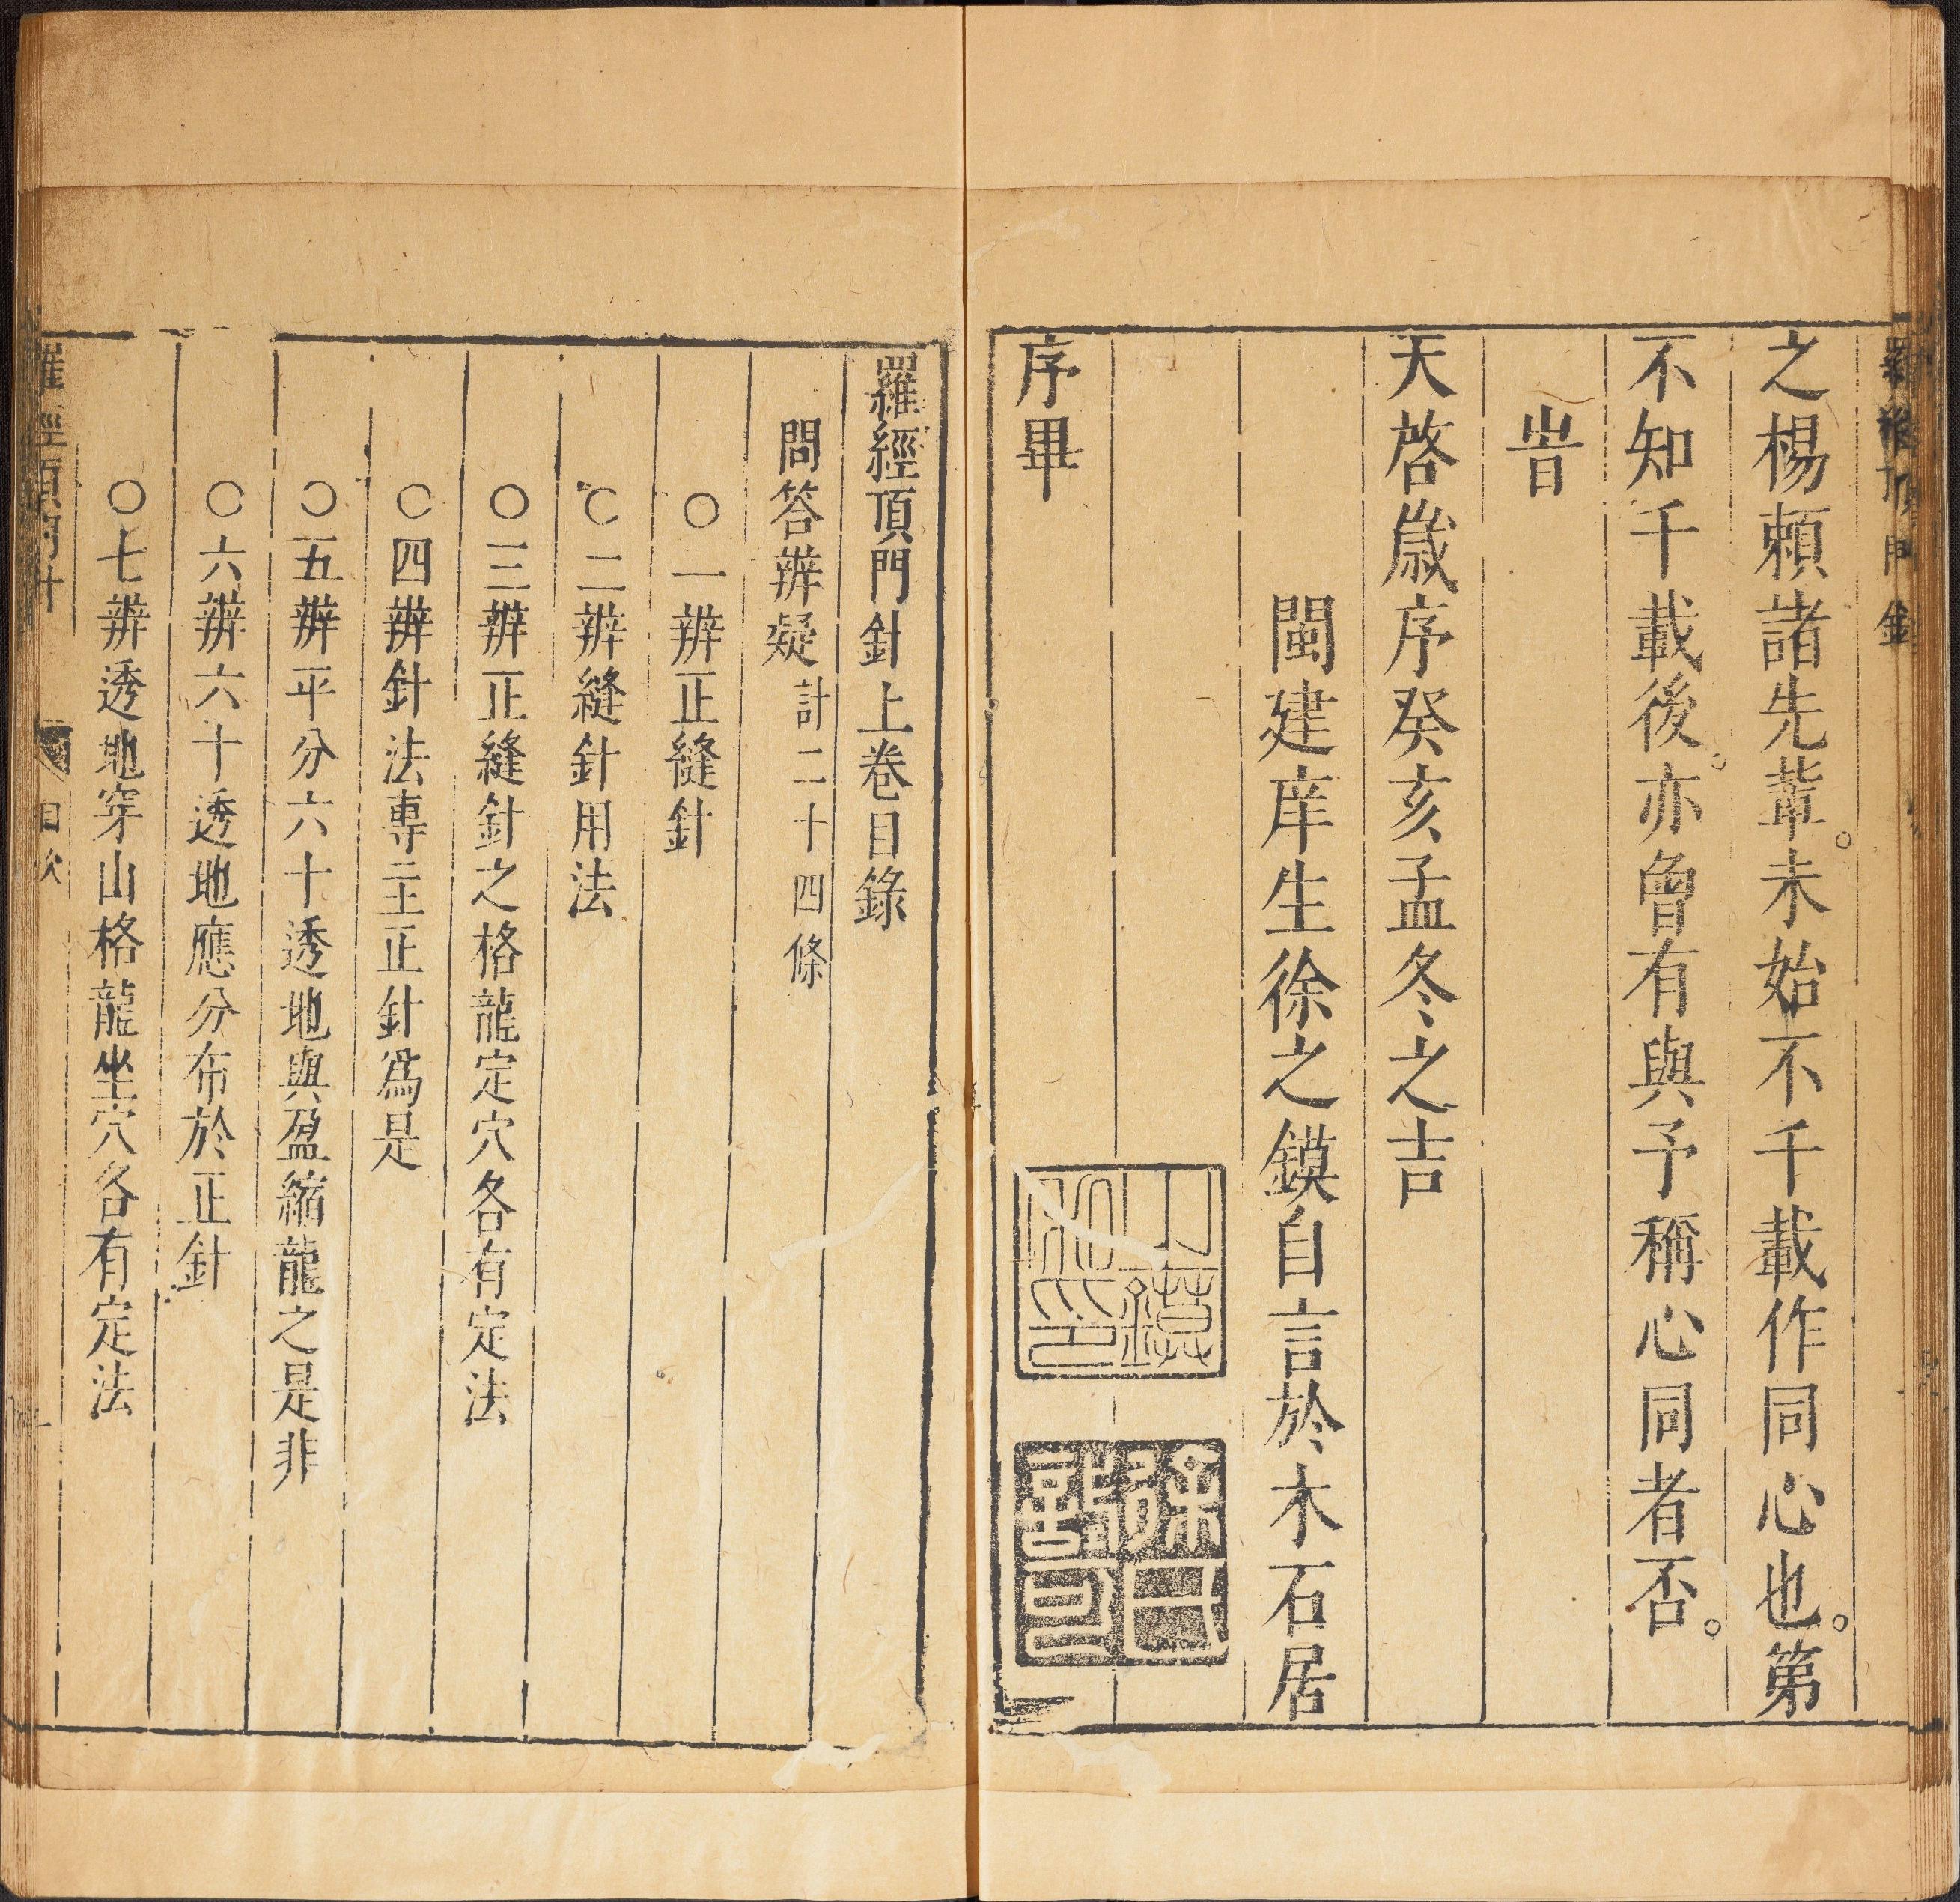 之楊賴諸先輩。未始不千載作同心也。第
不知千載後。亦曾有與予稱心同者否。
旹
天啓嵗序癸亥孟冬之吉
閩建庠生徐之鏌自言於木石居
序畢
羅經頂門針上卷目錄
問答辨疑計二十四條
○一辨正縫針
○二辨縫針用法
○三辨正縫針之格龍定穴各有定法
○四辨針法專主正針爲是
○五辨平分六十透地與盈縮龍之是非
○六辨六十透地應分布於正針
○七辨透地穿山格龍坐穴各有定法
羅經頂門針
目次